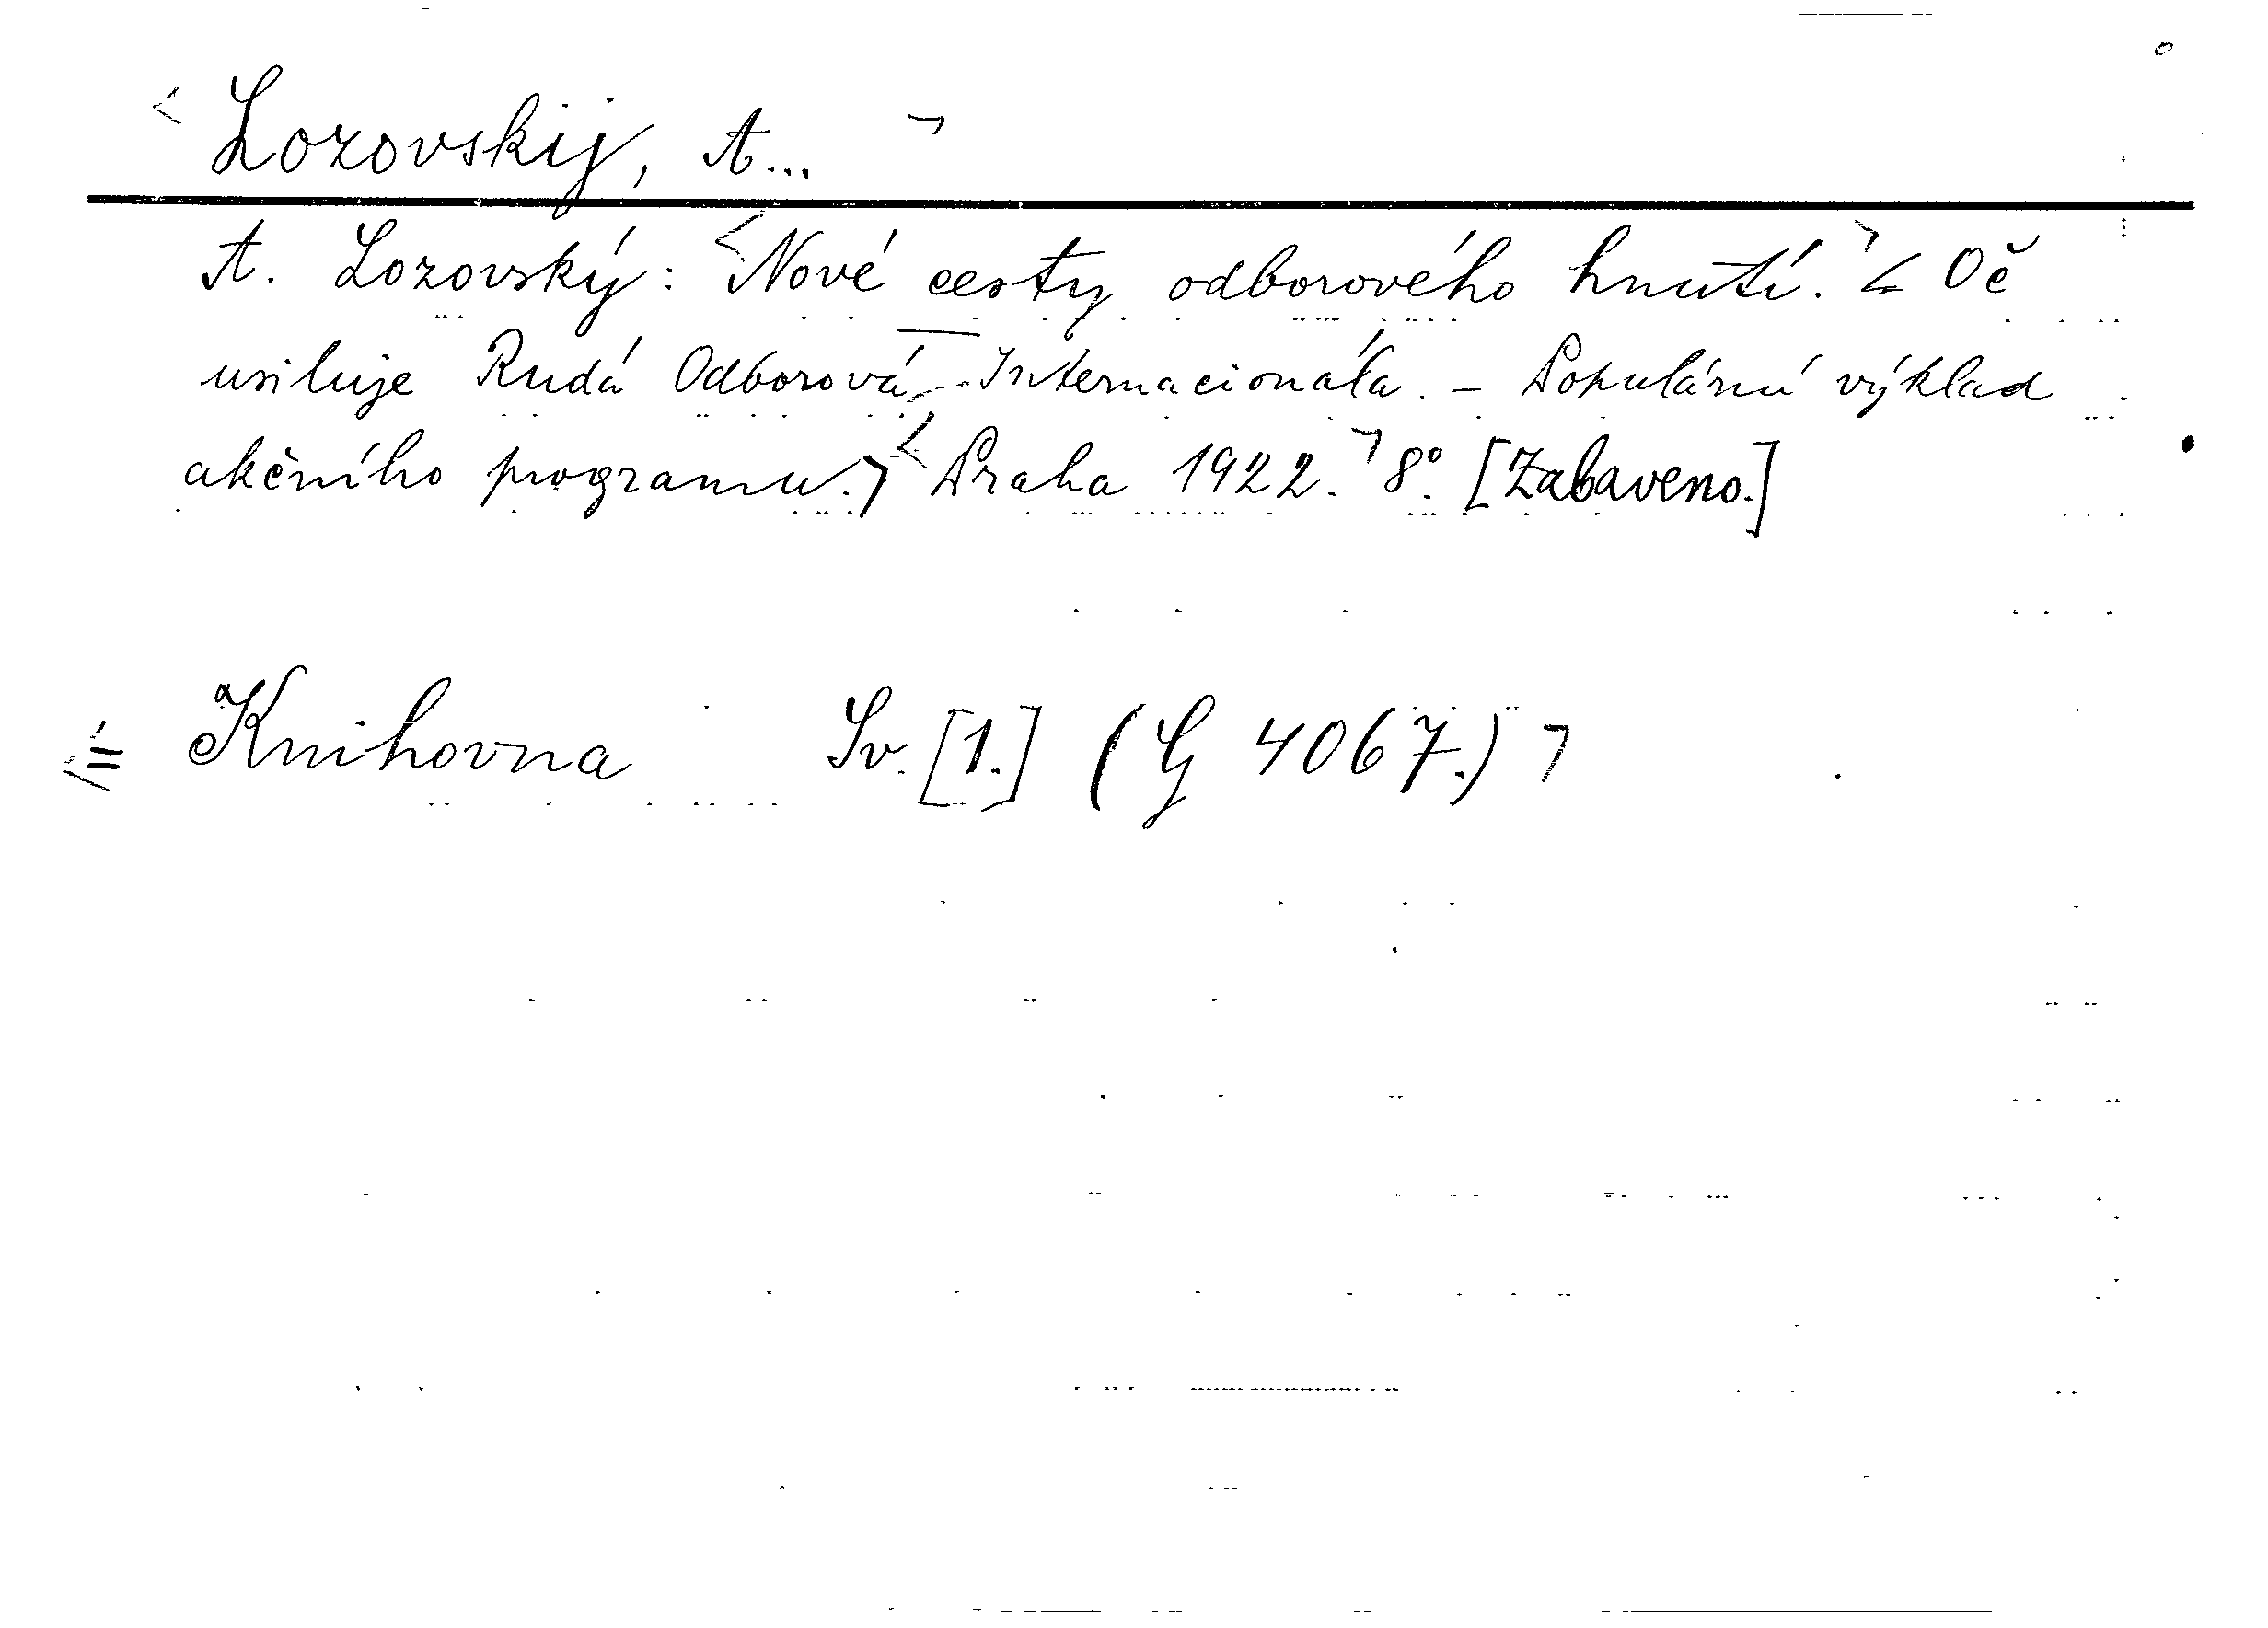 < Lozovskij, A... >
A. Lozovský: <Nové cesty odborového hnutí.> < Oč
usiluje Rudá Odborová Internacionála. - Populární výklad
akčního programu.> <Praha 1922.> 8°. [Zabaveno.]
<= Knihovna Sv. [1.] (G 4067.) >